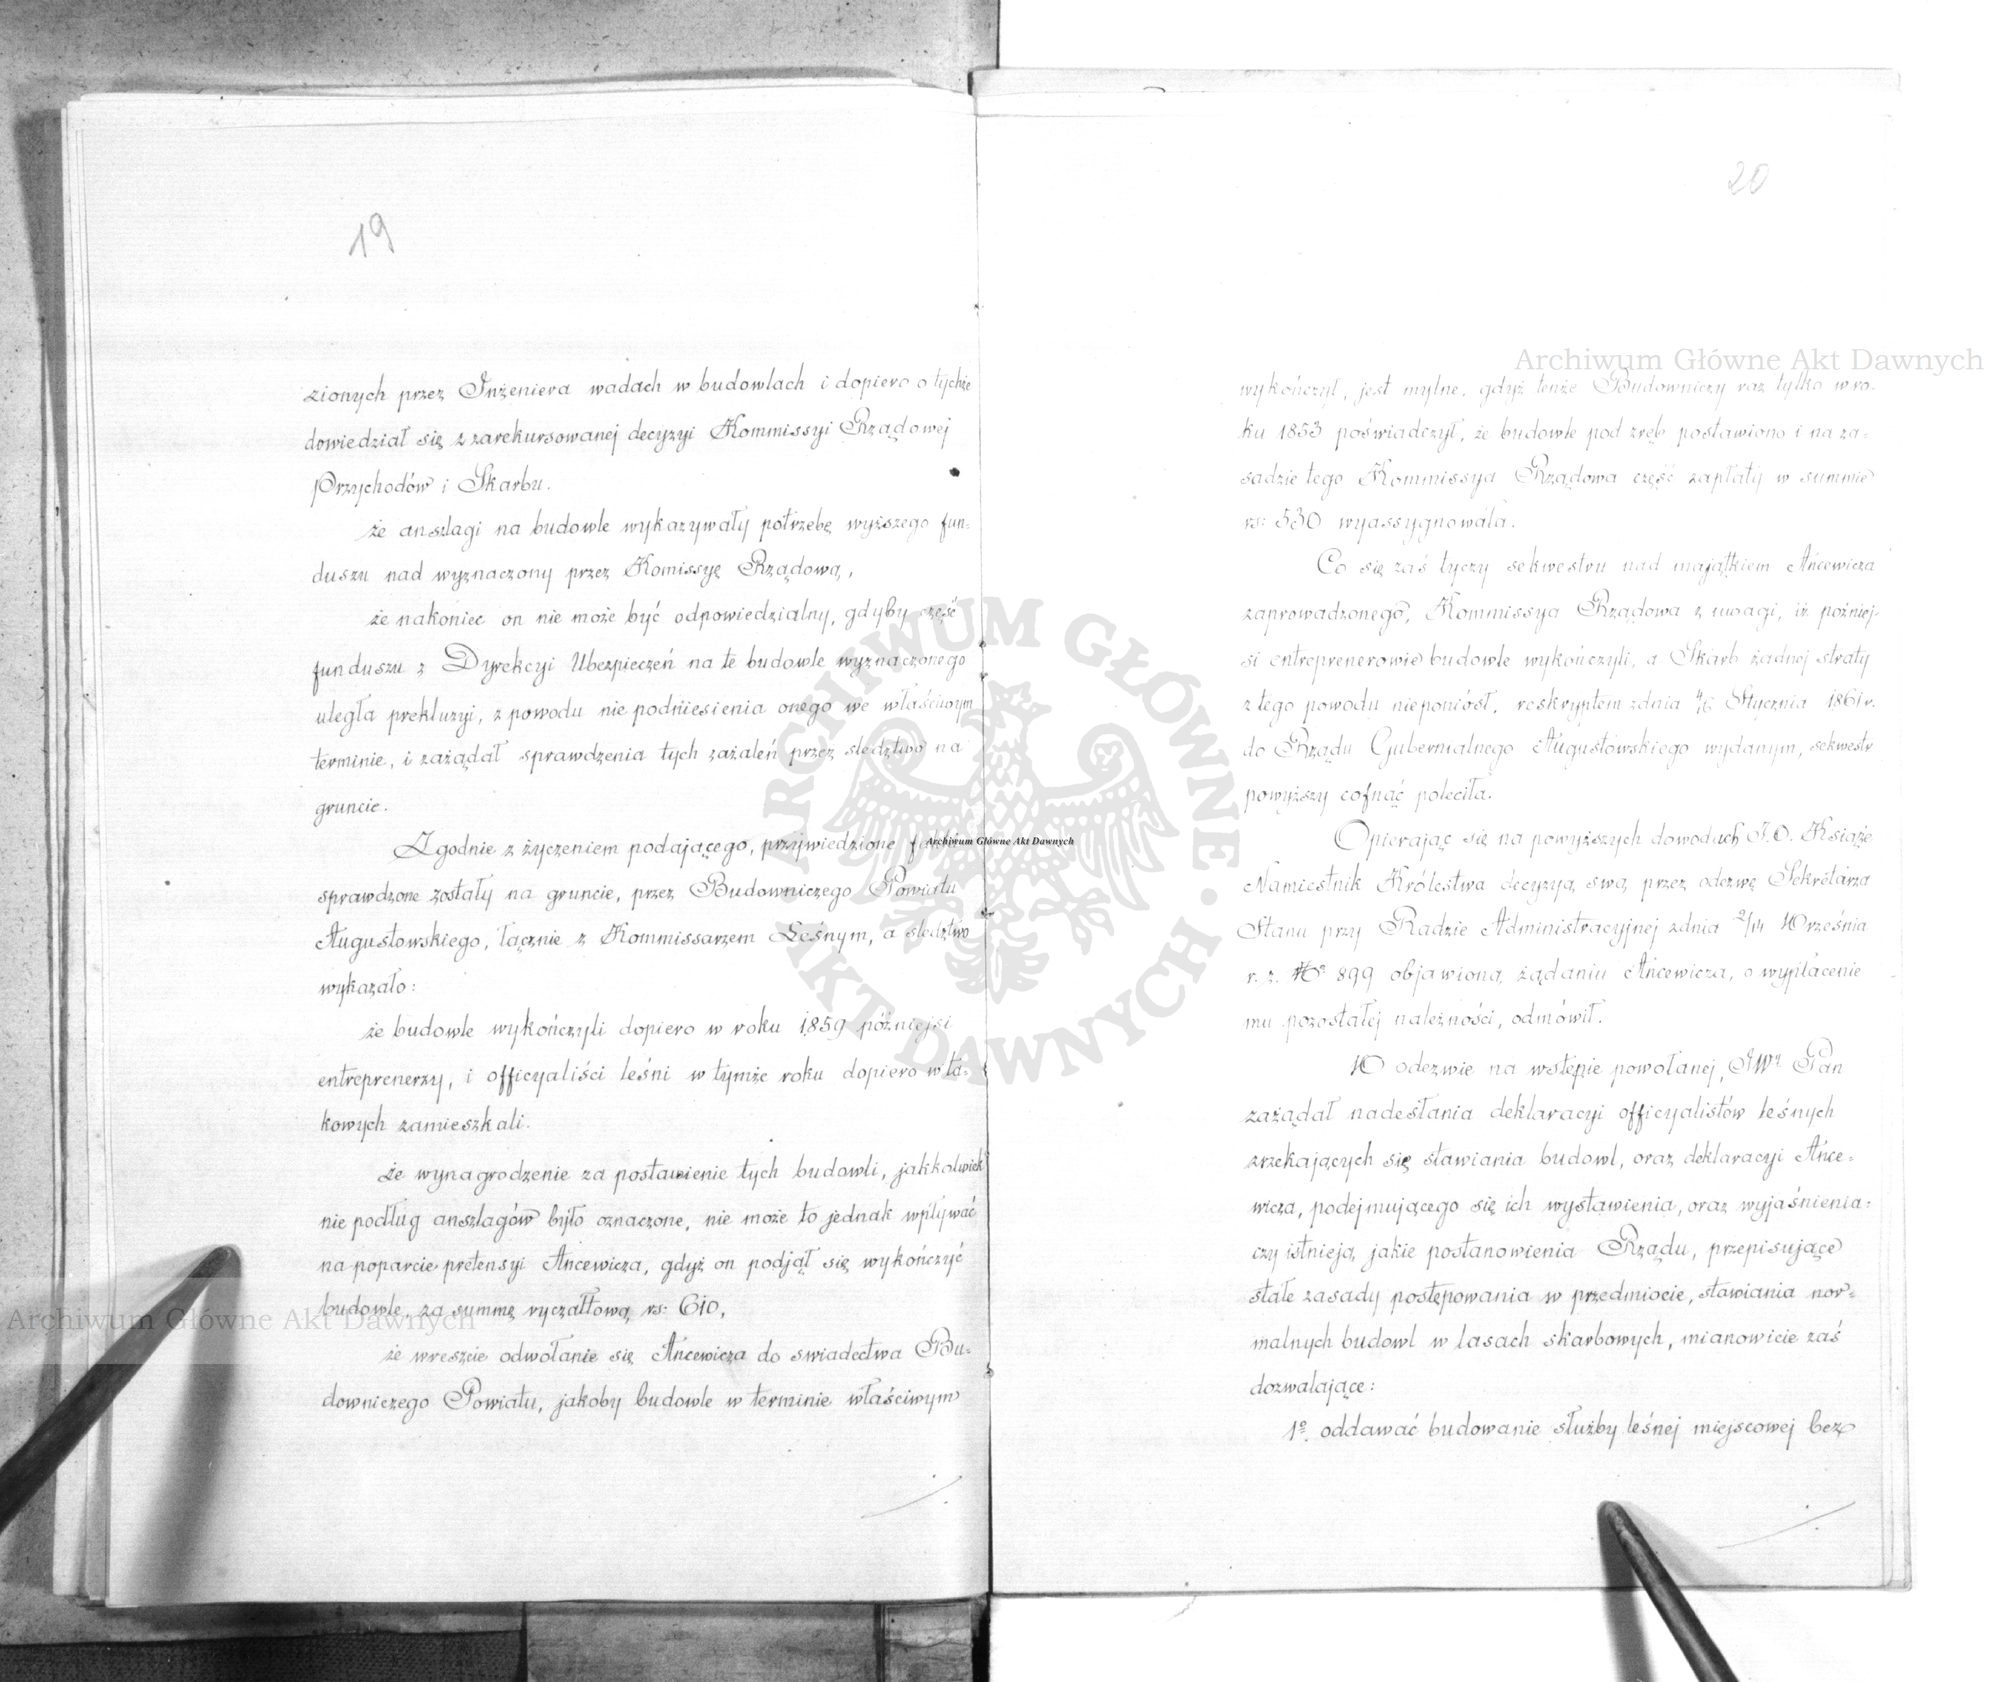 19
zionych przez Inżeniera wadach w budowlach i dopiero o tychże
dowiedział się z zarekursowanej decyzyi Kommissyi Rządowej
Przychodów i Skarbu.
że anszlagi na budowle wykazywały potrzebę wyższego fun-
duszu nad wyznaczony przez Komissyę Rządową,
że nakoniec on nie może być odpowiedzialny, gdyby część
funduszu z Dyrekcyi Ubezpieczeń na te budowle wyznaczonego
uległa prekluzyi, z powodu nie podniesienia onego we właściwym
terminie, i zażądał sprawdzenia tych zażaleń przez śledztwo na
gruncie.
Zgodnie z życzeniem podającego, przywiedzione
sprawdzone zostały na gruncie, przez Budowniczego Powiatu
Augustowskiego, łącznie z Kommissarzem Leśnym, a śledztwo
wykazało:
że budowle wykończyli dopiero w roku 1859 późniejsi
entreprenerzy, i officyaliści leśni w tymże roku dopiero w ta-
kowych zamieszkali.
że wynagrodzenie za postawienie tych budowli, jakkolwiek
nie podług anszlagów było oznaczone, nie może to jednak wpływać
na poparcie pretensyi Ancewicza, gdyż on podjął się wykończyć
budowle, za summę ryczałtową rs: 610,
że wreszcie odwołanie się Ancewicza do swiadectwa Bu-
downiczego Powiatu, jakoby budowle w terminie właściwym
20
wykończył, jest mylne, gdyż tenże Budowniczy raz tylko w ro-
ku 1853 poświadczył, że budowle pod zręb postawiono i na za-
sadzie tego Kommissya Rządowa część zapłaty w summie
rs: 530 wyassygnowała.
Co się zaś tyczy sekwestru nad majątkiem Ancewicza
zaprowadzonego, Kommissya Rządowa z uwagi, iż poźniej-
si entreprenerowie budowle wykończyli, a Skarb żadnej straty
z tego powodu nieponiósł, reskryptem z dnia 4/16 Stycznia 1861 r.
do Rządu Gubernialnego Augustowskiego wydanym, sekwestr
powyższy cofnąć poleciła.
Opierając się na powyższych dowodach J. O. Książe
Namiestnik Królestwa decyzyą swą przez odezwę Sekretarza
Stanu przy Radzie Administracyjnej z dnia 2/14 Września
r. z. No 899 objawioną, żądaniu Ancewicza, o wypłacenie
mu pozostałej należności, odmówił.
W odezwie na wstępie powołanej, JWy Pan
zażądał nadesłania deklaracyi officyalistów leśnych
zrzekających się stawiania budowl, oraz deklaracyi Ance-
wicza, podejmującego się ich wystawienia, oraz wyjaśnienia:
czy istnieją jakie postanowienia Rządu, przepisujące
stałe zasady postępowania w przedmiocie, stawiania nor-
malnych budowl w lasach skarbowych, mianowicie zaś
dozwalające:
1o. oddawać budowanie służby leśnej miejscowej bez
Archiwum Główne Akt Dawnych
Archiwum Główne Akt Dawnych
Archiwum Główne Akt Dawnych
ARCHIWUM GŁÓWNE · AKT DAWNYCH ·